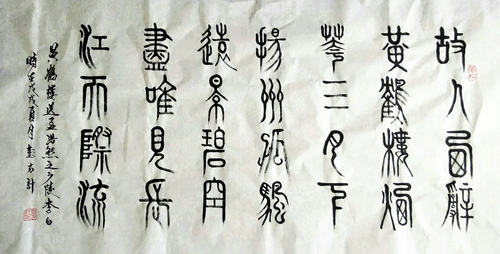 故人西辭
黃鶴樓煙
花三月下
揚州孤帆
遠景碧空
盡唯見長
江天際流
黃鶴樓送孟浩然之廣陵李白
時在戊戌夏月